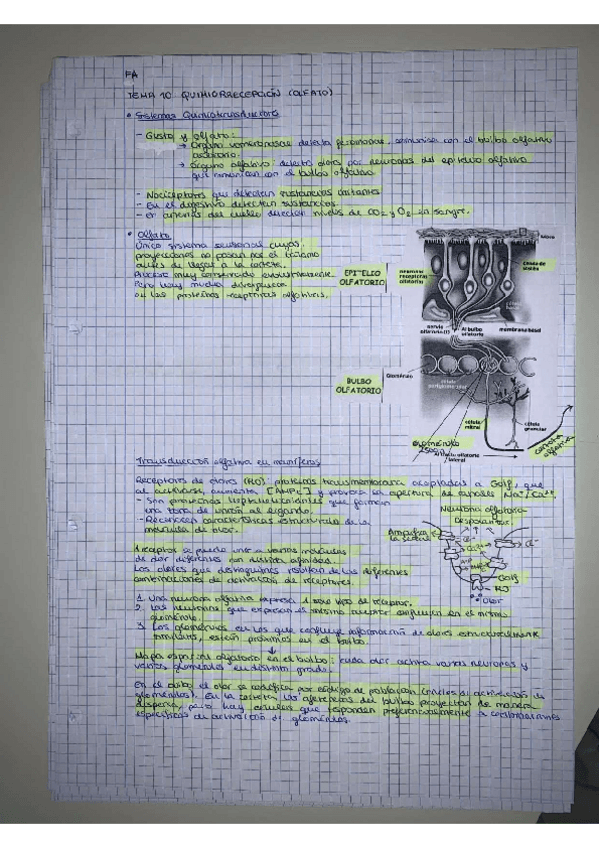 FA
TEMA 10. QUIMIORRECEPCIÓN (OLFATO)
• Sistemas Quimiotransductores
- Gusto y olfato:
→ Órgano vomeronasal detecta feromonas, comunica con el bulbo olfativo
accesorio.
→ Órgano olfativo: detecta olores por neuronas del epitelio olfativo
que comunican con el bulbo olfativo
- Nociceptores que detectan sustancias irritantes
- En el digestivo detectan sustancias.
- en arterias del cuello detectan niveles de CO2 y O2 en sangre.
• Olfato
Único sistema sensorial cuyas
proyecciones no pasan por el tálamo
antes de llegar a la corteza.
Proceso muy conservado evolutivamente
Pero hay mucha divergencia
en las proteínas receptoras olfativas.
EPITELIO
OLFATORIO
neuronas
receptoras
olfatorias
nervio
olfatorio (I)
Al bulbo
olfatorio
membrana basal
BULBO
OLFATORIO
Glomérulo
célula
mitral
célula
granular
glomérulo
Al tracto olfatorio
lateral
corteza
olfativa
Transducción olfativa en mamíferos
Receptores de olores (RO): proteínas transmembrana acopladas a Golf, que
al activarse, aumenta [AMPc] y provoca la apertura de canales Na+/Ca2+.
- Son proteínas heptahelicoidales que forman
una zona de unión al ligando.
- Reconocen características estructurales de la
molécula de olor.
Neurona olfatoria
Despolariza
Amplifica
la señal
Cl-
Golf
RO
Olor
1 receptor se puede unir a varias moléculas
de olor diferentes con distinta afinidad.
Los olores que distinguimos resultan de las diferentes
combinaciones de activación de receptores.
1. Una neurona olfativa expresa 1 solo tipo de receptor.
2. Las neuronas que expresan el mismo receptor confluyen en el mismo
glomérulo.
3. Los glomérulos en los que confluye información de olores estructuralmente
similares, están próximos en el bulbo.
↓
Mapa espacial olfatorio en el bulbo: cada olor activa varias neuronas y
varios glomérulos en distinto grado.
En el bulbo, el olor se codifica por código de población (niveles de activación de
glomérulos). En la corteza las aferencias del bulbo proyectan de manera
dispersa, pero hay células que responden preferencialmente a combinaciones
específicas de activación de glomérulos.